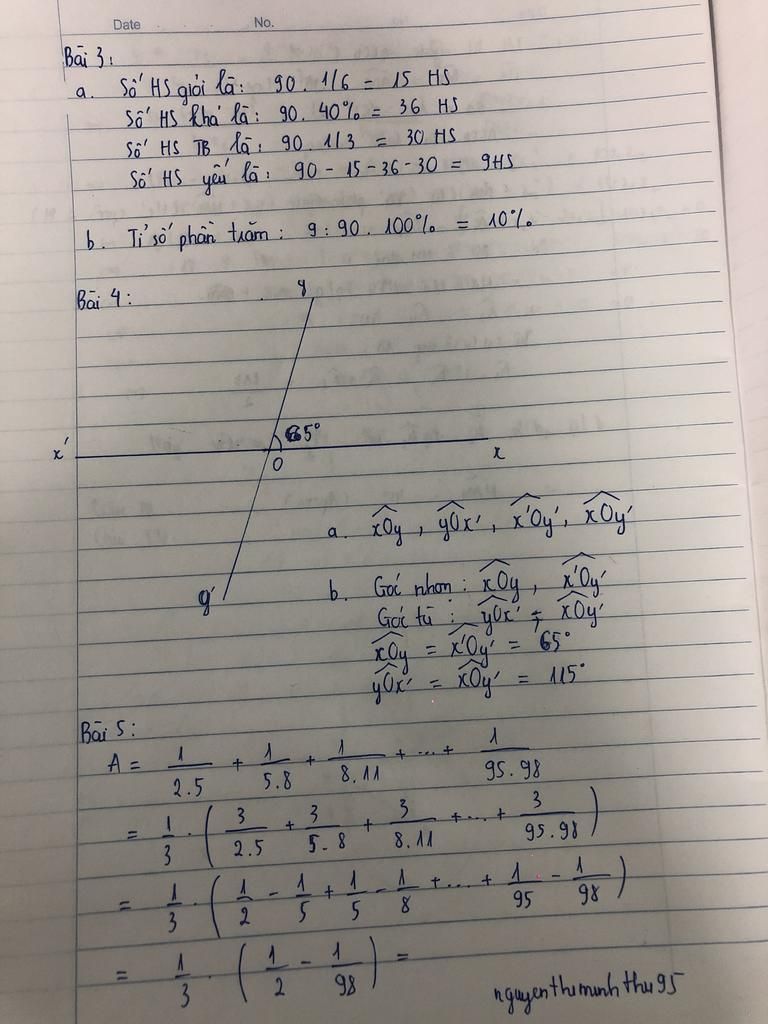 Date No.
Bài 3:
a. Số HS giỏi là: 90 . 1/6 = 15 HS
Số HS khá là: 90. 40% = 36 HS
Số HS TB là: 90 . 1/3 = 30 HS
Số HS yếu là: 90 - 15 - 36 - 30 = 9HS
b. Tỉ số phần trăm : 9 : 90 . 100% = 10%
Bài 4:
y
65°
x' O x
y'
a. xOy , yOx' , x'Oy' , xOy'
b. Góc nhọn : xOy , x'Oy'
Góc tù : yOx' , xOy'
xOy = x'Oy' = 65°
yOx' = xOy' = 115°
Bài 5:
A = 1/2.5 + 1/5.8 + 1/8.11 + ... + 1/95.98
= 1/3 . ( 3/2.5 + 3/5.8 + 3/8.11 + ... + 3/95.98 )
= 1/3 . ( 1/2 - 1/5 + 1/5 - 1/8 + ... + 1/95 - 1/98 )
= 1/3 . ( 1/2 - 1/98 ) =
nguyenthiminhthu95